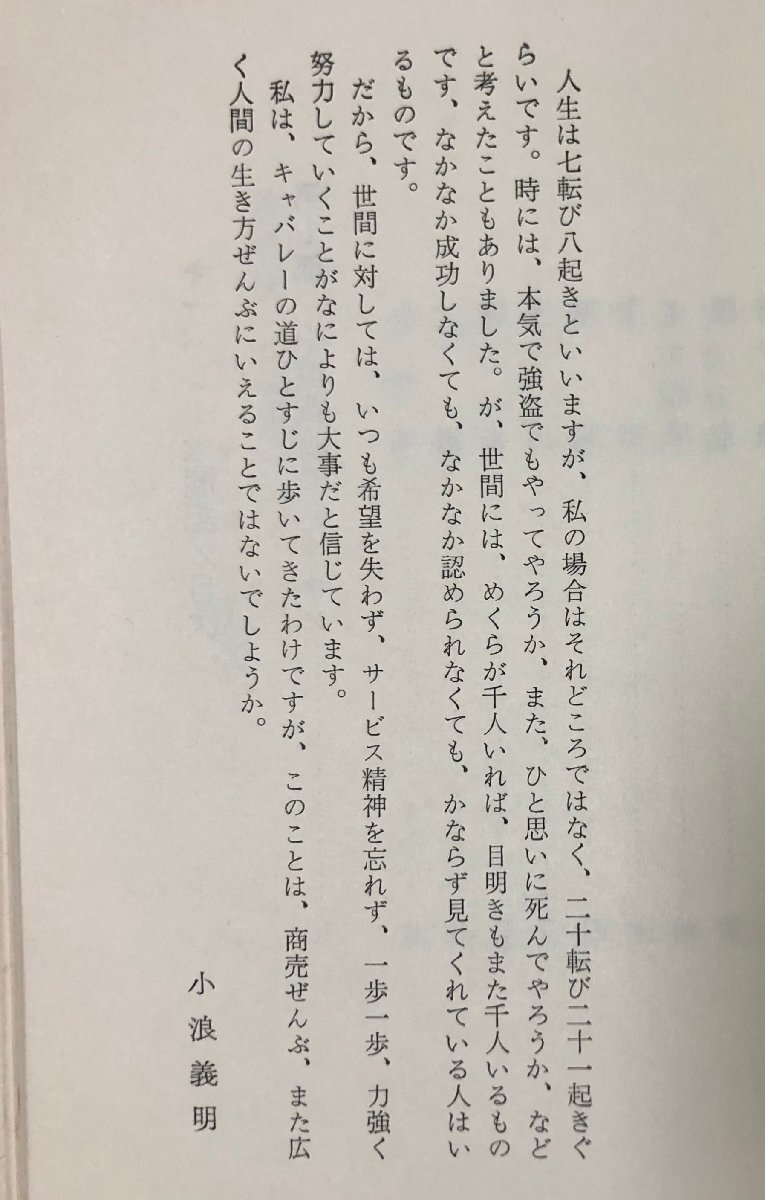 人生は七転び八起きといいますが、私の場合はそれどころではなく、二十転び二十一起きぐ
らいです。時には、本気で強盗でもやってやろうか、また、ひと思いに死んでやろうか、など
と考えたこともありました。が、世間には、めくらが千人いれば、目明きもまた千人いるもの
です、なかなか成功しなくても、なかなか認められなくても、かならず見てくれている人はい
るものです。
だから、世間に対しては、いつも希望を失わず、サービス精神を忘れず、一歩一歩、力強く
努力していくことがなによりも大事だと信じています。
私は、キャバレーの道ひとすじに歩いてきたわけですが、このことは、商売ぜんぶ、また広
く人間の生き方ぜんぶにいえることではないでしようか。
小浪義明